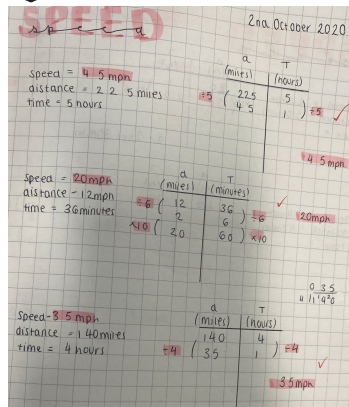 SPEED
speed
2nd October 2020
speed = 45mph
distance = 225 miles
time = 5 hours
d T
(miles) (hours)
÷5 ( 225 5 ) ÷5
45 1
45mph
speed = 20mph
distance - 12mph
time = 36minutes
d T
(miles) (minutes)
÷6 ( 12 36 ) ÷6
2 6
×10 ( 20 60 ) ×10
20mph
035
4 1 ¹4 ²0
speed-35mph
distance = 140miles
time = 4 hours
d T
(miles) (hours)
140 4
÷4 ( 35 1 ) ÷4
35mph